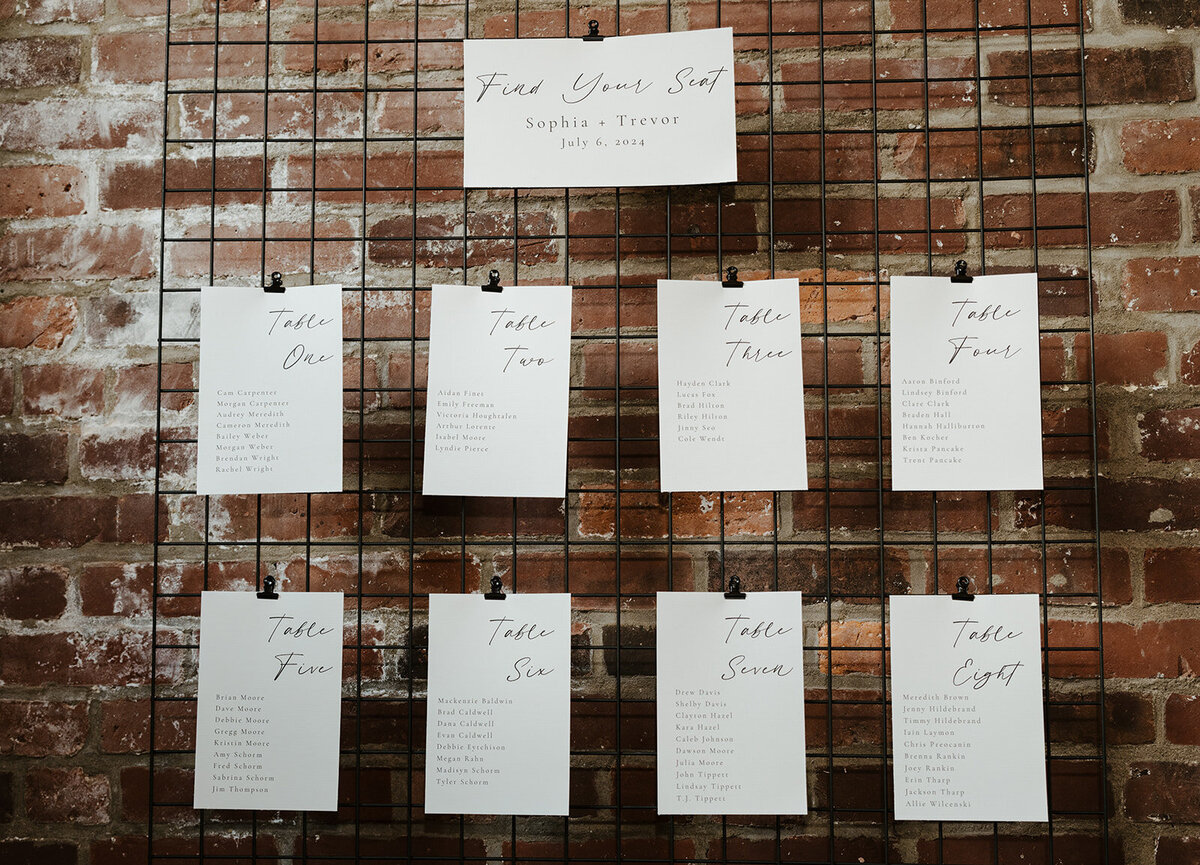 Find Your Seat
Sophia + Trevor
July 6, 2024
Table
One
Cam Carpenter
Morgan Carpenter
Audrey Meredith
Cameron Meredith
Bailey Weber
Morgan Weber
Brendan Wright
Rachel Wright
Table
Two
Aidan Fines
Emily Freeman
Victoria Houghtalen
Arthur Lorente
Isabel Moore
Lyndie Pierce
Table
Three
Hayden Clark
Lucas Fox
Brad Hilton
Riley Hilton
Jinny Seo
Cole Wendt
Table
Four
Aaron Binford
Lindsey Binford
Clare Clark
Braden Hall
Hannah Halliburton
Ben Kocher
Krista Pancake
Trent Pancake
Table
Five
Brian Moore
Dave Moore
Debbie Moore
Gregg Moore
Kristin Moore
Amy Schorm
Fred Schorm
Sabrina Schorm
Jim Thompson
Table
Six
Mackenzie Baldwin
Brad Caldwell
Dana Caldwell
Evan Caldwell
Debbie Eytchison
Megan Rahn
Madisyn Schorm
Tyler Schorm
Table
Seven
Drew Davis
Shelby Davis
Clayton Hazel
Kara Hazel
Caleb Johnson
Dawson Moore
Julia Moore
John Tippett
Lindsay Tippett
T.J. Tippett
Table
Eight
Meredith Brown
Jenny Hildebrand
Timmy Hildebrand
Iain Laymon
Chris Preocanin
Brenna Rankin
Joey Rankin
Erin Tharp
Jackson Tharp
Allie Wilcenski